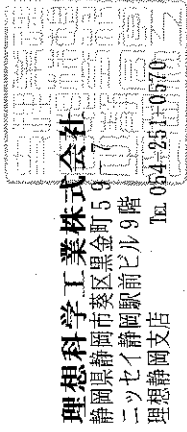 理想科学工業株式会社
静岡県静岡市葵区黒金町59-7
ニッセイ静岡駅前ビル9階
理想静岡支店 ℡ 054-251-0570